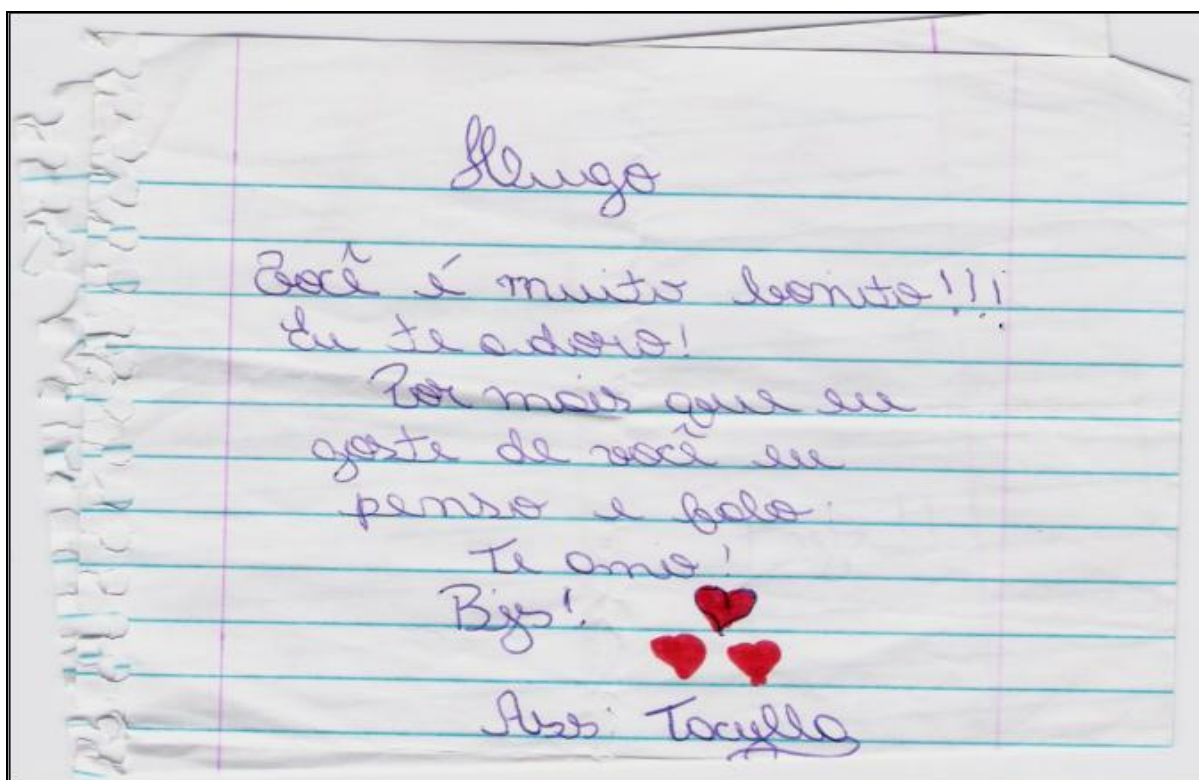 Hugo
Você é muito bonito!!!
Eu te adoro!
Por mais que eu
goste de você eu
penso e falo:
Te amo!
Bjs!
Ass: Tacylla